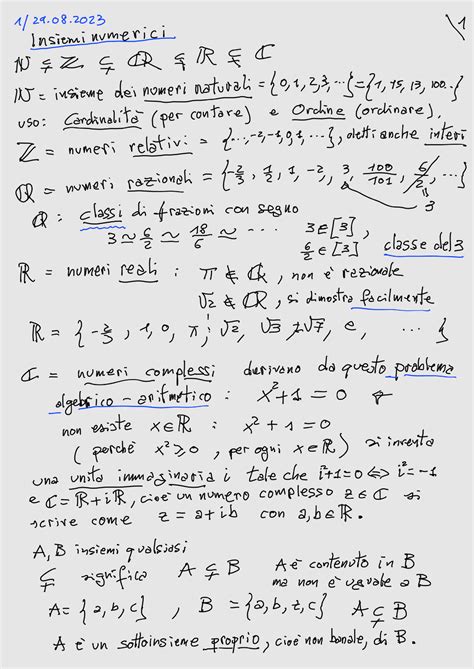 1/29.08.2023
1
Insiemi numerici
ℕ ⊊ ℤ ⊊ ℚ ⊊ ℝ ⊊ ℂ
ℕ = insieme dei numeri naturali = {0,1,2,3,...}={1,15,13,100..}
uso: Cardinalità (per contare) e Ordine (ordinare).
ℤ = numeri relativi = {...,-2,-1,0,1,...}, detti anche interi
ℚ = numeri razionali = {-2/3, 1/2, 1, -2, 3, 100/101, 6/2, ...}
3
ℚ: classi di frazioni con segno
3 ~ 6/2 ~ 18/6 ~ ...
3∈[3],
6/2 ∈ [3]
classe del 3
ℝ = numeri reali : π ∉ ℚ, non è razionale
√2 ∉ ℚ, si dimostra facilmente
ℝ = {-2/3, 1, 0, π, √2, √3, √7, e, ...}
ℂ = numeri complessi derivano da questo problema
algebrico-aritmetico : x²+1 = 0
non esiste x∈ℝ : x²+1 = 0
(perchè x²≥0, per ogni x∈ℝ) si inventa
una unità immaginaria i tale che i²+1=0 ⇔ i²=-1
e ℂ=ℝ+iℝ, cioè un numero complesso z∈ℂ si
scrive come z = a+ib con a,b∈ℝ.
A, B insiemi qualsiasi
⊊ significa A ⊊ B A è contenuto in B
ma non è uguale a B
A= {a,b,c} , B = {a,b,z,c} A⊊B
A è un sottoinsieme proprio, cioè non banale, di B.